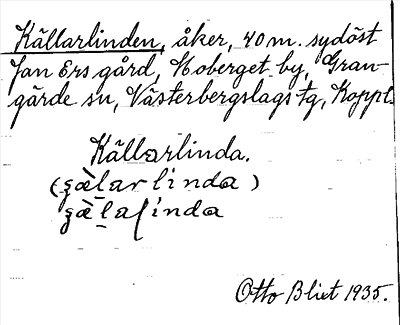 Källarlinden, åker, 40 m. sydöst
Jan Ers gård, Hoberget by, Gran-
gärde sn, Västerbergslags tg, Koppl.
Källarlinda.
(gä̀larlinda)
gä̀laſinda
Otto Blixt 1935.